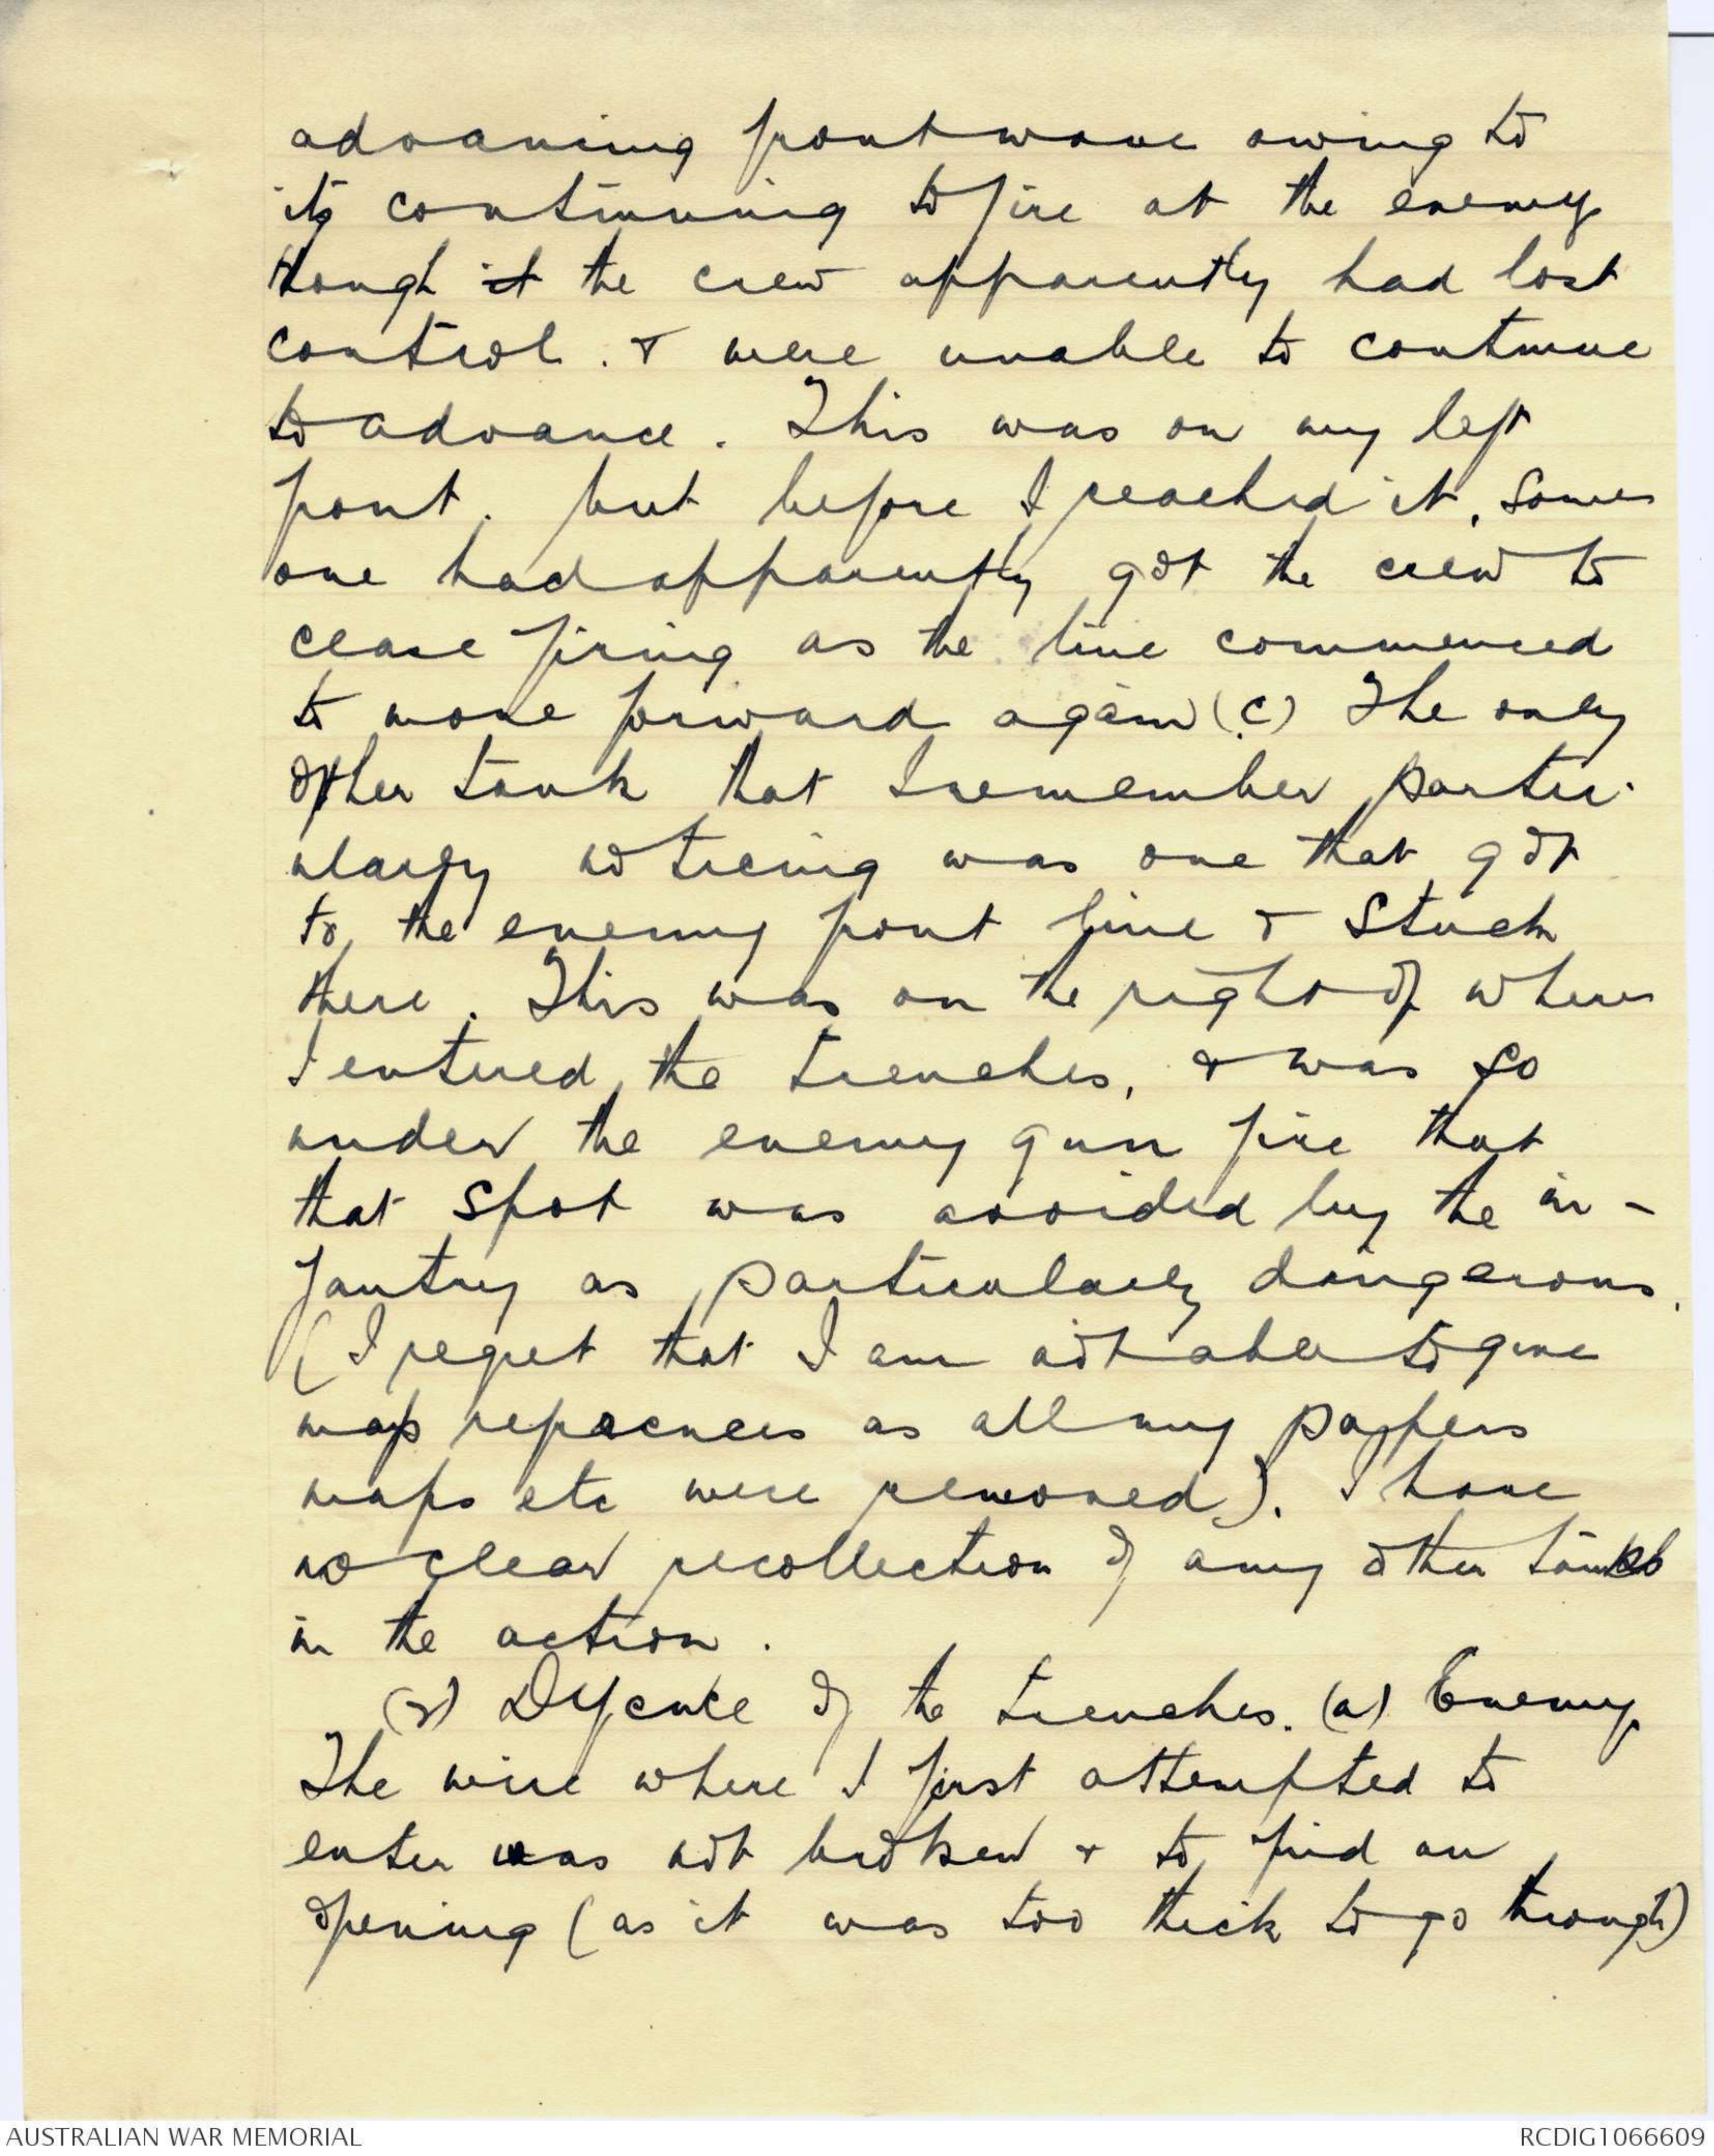 advancing front wave owing to
its continuing to fire at the enemy
though it the crew apparently had lost
control. & were unable to continue
to advance. This was on my left
front. but before I reached it, some
one had apparently got the crew to
cease firing as the line commenced
to move forward again (c) The only
other tank that I remember partic-
ularly noticing was one that got
to the enemy front line & stuck
there. This was on the right of where
I entered the trenches, & was so
under the enemy gun fire that
that spot was avoided by the in-
fantry as particularly dangerous.
(I regret that I am not able to give
map references as all my papers
maps etc were removed). I have
no clear recollection of any other tanks
in the action.
Defence of the trenches. (a) Enemy
The wire where I first attempted to
enter was not broken & to find an
opening (as it was too thick to go through)
AUSTRALIAN WAR MEMORIAL
RCDIG1066609